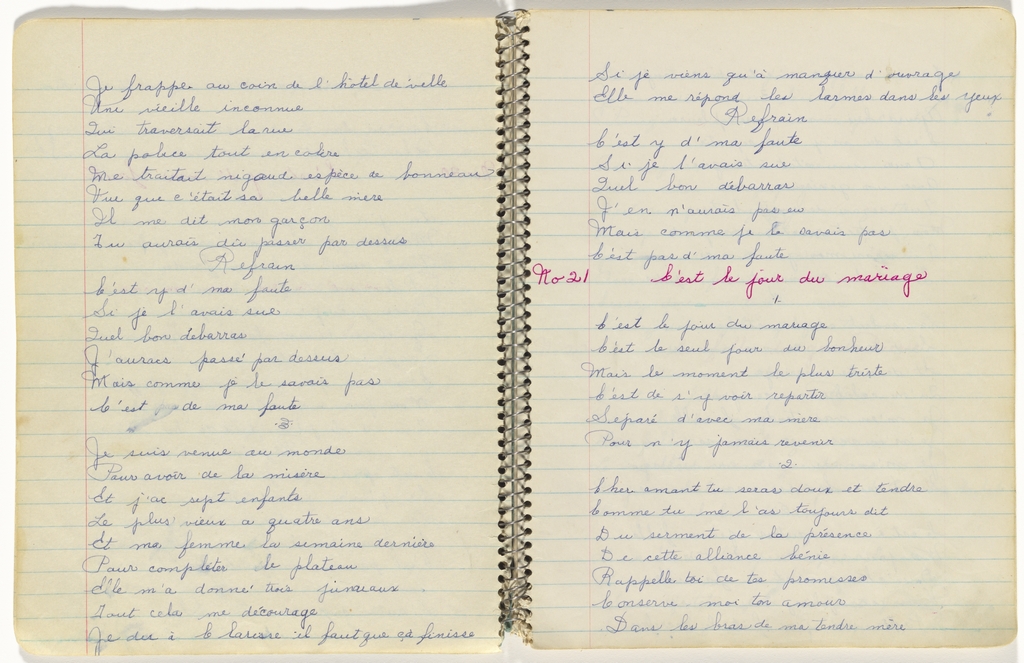 Je frappe au coin de l'hôtel de velle
Une vieille inconnue
Qui traversait la rue
La police tout en colère
Me traitait nigaud espèce de bonneau
Vue que c'était sa belle mère
Il me dit mon garçon
Tu aurais dû passer par dessus
Refrain
C'est y d'ma faute
Si je l'avais sue
Quel bon débarras
J'aurais passé par dessus
Mais comme je le savais pas
C'est de ma faute
.3.
Je suis venue au monde
Pour avoir de la misère
Et j'ac sept enfants
Le plus vieux a quatre ans
Et ma femme la semaine dernière
Pour compléter le plateau
Elle m'a donné trois jumeaux
Tout cela me décourage
Je dis à Clarisse il faut que ça finisse
Si je viens qu'à manquer d'ouvrage
Elle me répond les larmes dans les yeux
Refrain
C'est y d'ma faute
Si je l'avais sue
Quel bon débarras
J'en n'aurais pas eu
Mais comme je le savais pas
C'est pas d'ma faute
No 21 C'est le jour du mariage
1.
C'est le jour du mariage
C'est le seul jour du bonheur
Mais le moment le plus triste
C'est de s'y voir repartir
Separé d'avec ma mère
Pour n'y jamais revenir
.2.
Cher amant tu seras doux et tendre
Comme tu me l'as toujours dit
Du serment de la présence
De cette alliance bénie
Rappelle toi de tes promesses
Conserve moi ton amour
Dans les bras de ma tendre mère